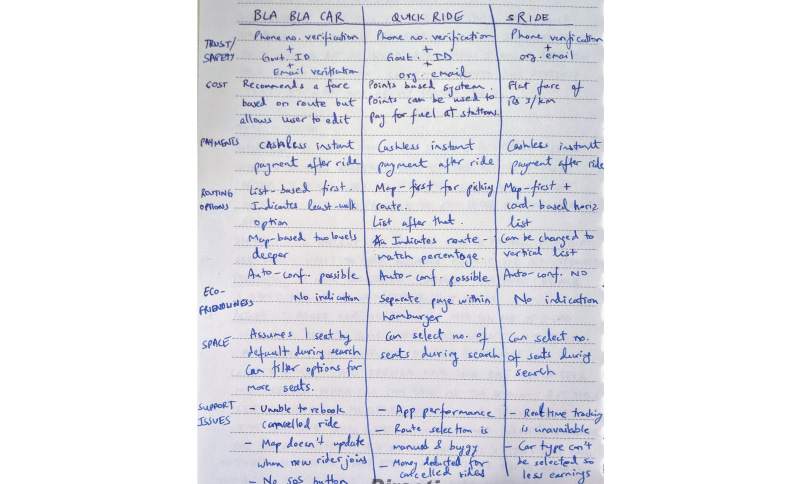 BLA BLA CAR QUICK RIDE SRIDE
TRUST/ Phone no. verification Phone no. verification Phone verification
SAFETY + + +
Govt. ID Govt. ID org. email
+ +
Email verification org. email
COST Recommends a fare Points based system. Flat fare of
based on route but Points can be used to Rs 3/km
allows user to edit pay for fuel at stations.
PAYMENTS Cashless instant Cashless instant Cashless instant
payment after ride payment after ride payment after ride
ROUTING List-based first. Map-first for picking Map-first +
OPTIONS Indicates least-walk route. card-based horiz.
option List after that. list
Map-based two levels Indicates route- Can be changed to
deeper match percentage. vertical list
Auto-conf. possible Auto-conf. possible Auto-conf. NO
ECO- No indication Separate page within No indication
FRIENDLINESS hamburger
SPACE Assumes 1 seat by Can select no. of Can select no.
default during search seats during search of seats during
Can filter options for search
more seats.
SUPPORT - Unable to rebook - App performance - Real time tracking
ISSUES cancelled ride - Route selection is is unavailable
- Map doesn't update manual & buggy - Car type can't
when new rider joins - Money deducted for be selected so
- No SOS button cancelled rides less earnings